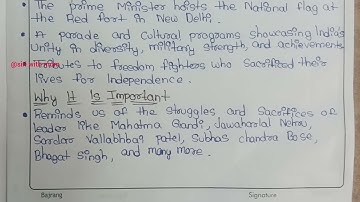 • The prime Minister hoists the National flag at
the Red fort in New Delhi.
• A parade and cultural programs showcasing India's
Unity in diversity, military strength, and achievements
Tributes to freedom fighters who sacrificed their
lives for Independence.
Why It Is Important
• Reminds us of the struggles and Sacrifices of
leader like Mahatma Gandi, Jawaharlal Nehru,
Sardar Vallabhbai patel, Subhas chandra Bose,
Bhagat Singh, and many more.
Bajrang
Signature